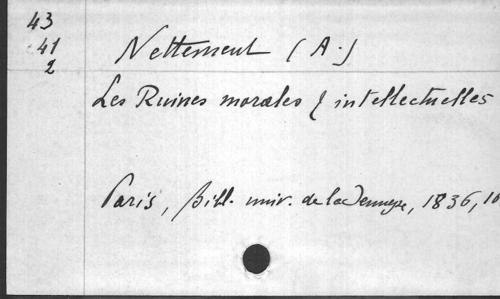 43
41
2
Nettement (A.)
Les Ruines morales & intellectuelles
Paris, Bibl. univ. de la Jeunesse, 1836, 10